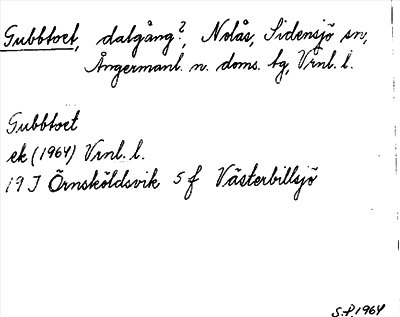 Gubbtoet, dalgång?, Nolås, Sidensjö sn,
Ångermanl. n. doms. tg, Vrnl. l.
Gubbtoet
ek (1964) Vrnl. l.
19 J Örnsköldsvik 5 f Västerbillsjö
S.F. 1964